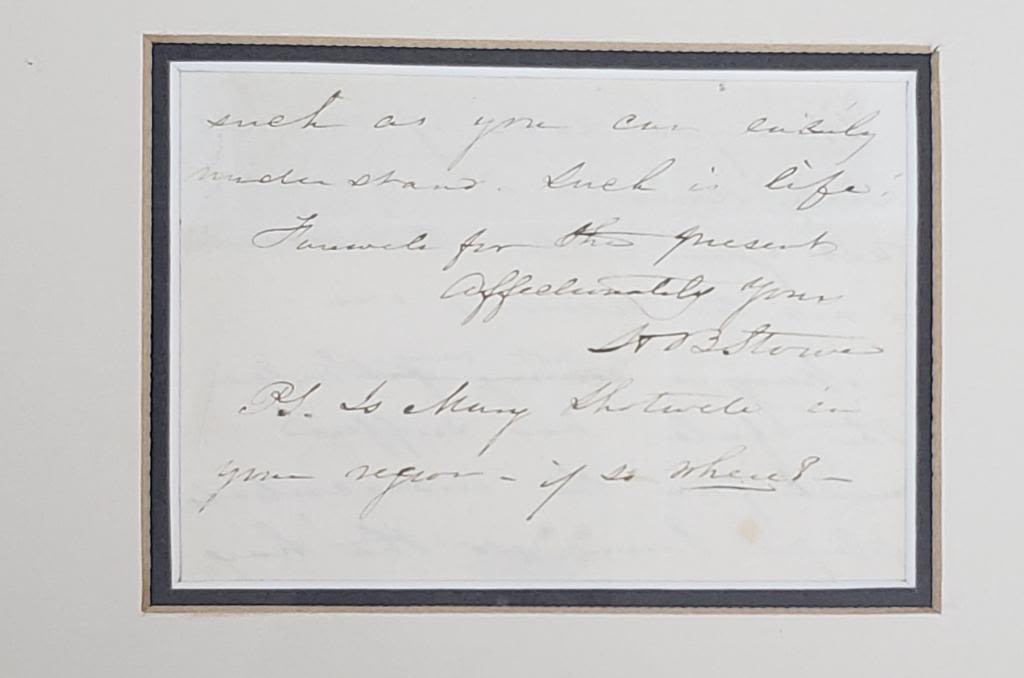 such as you can easily
understand. Such is life!
Farewell for the present
Affectionately Yours
H B Stowe
PS. Is Mary Shotwell in
your region - if so where? -